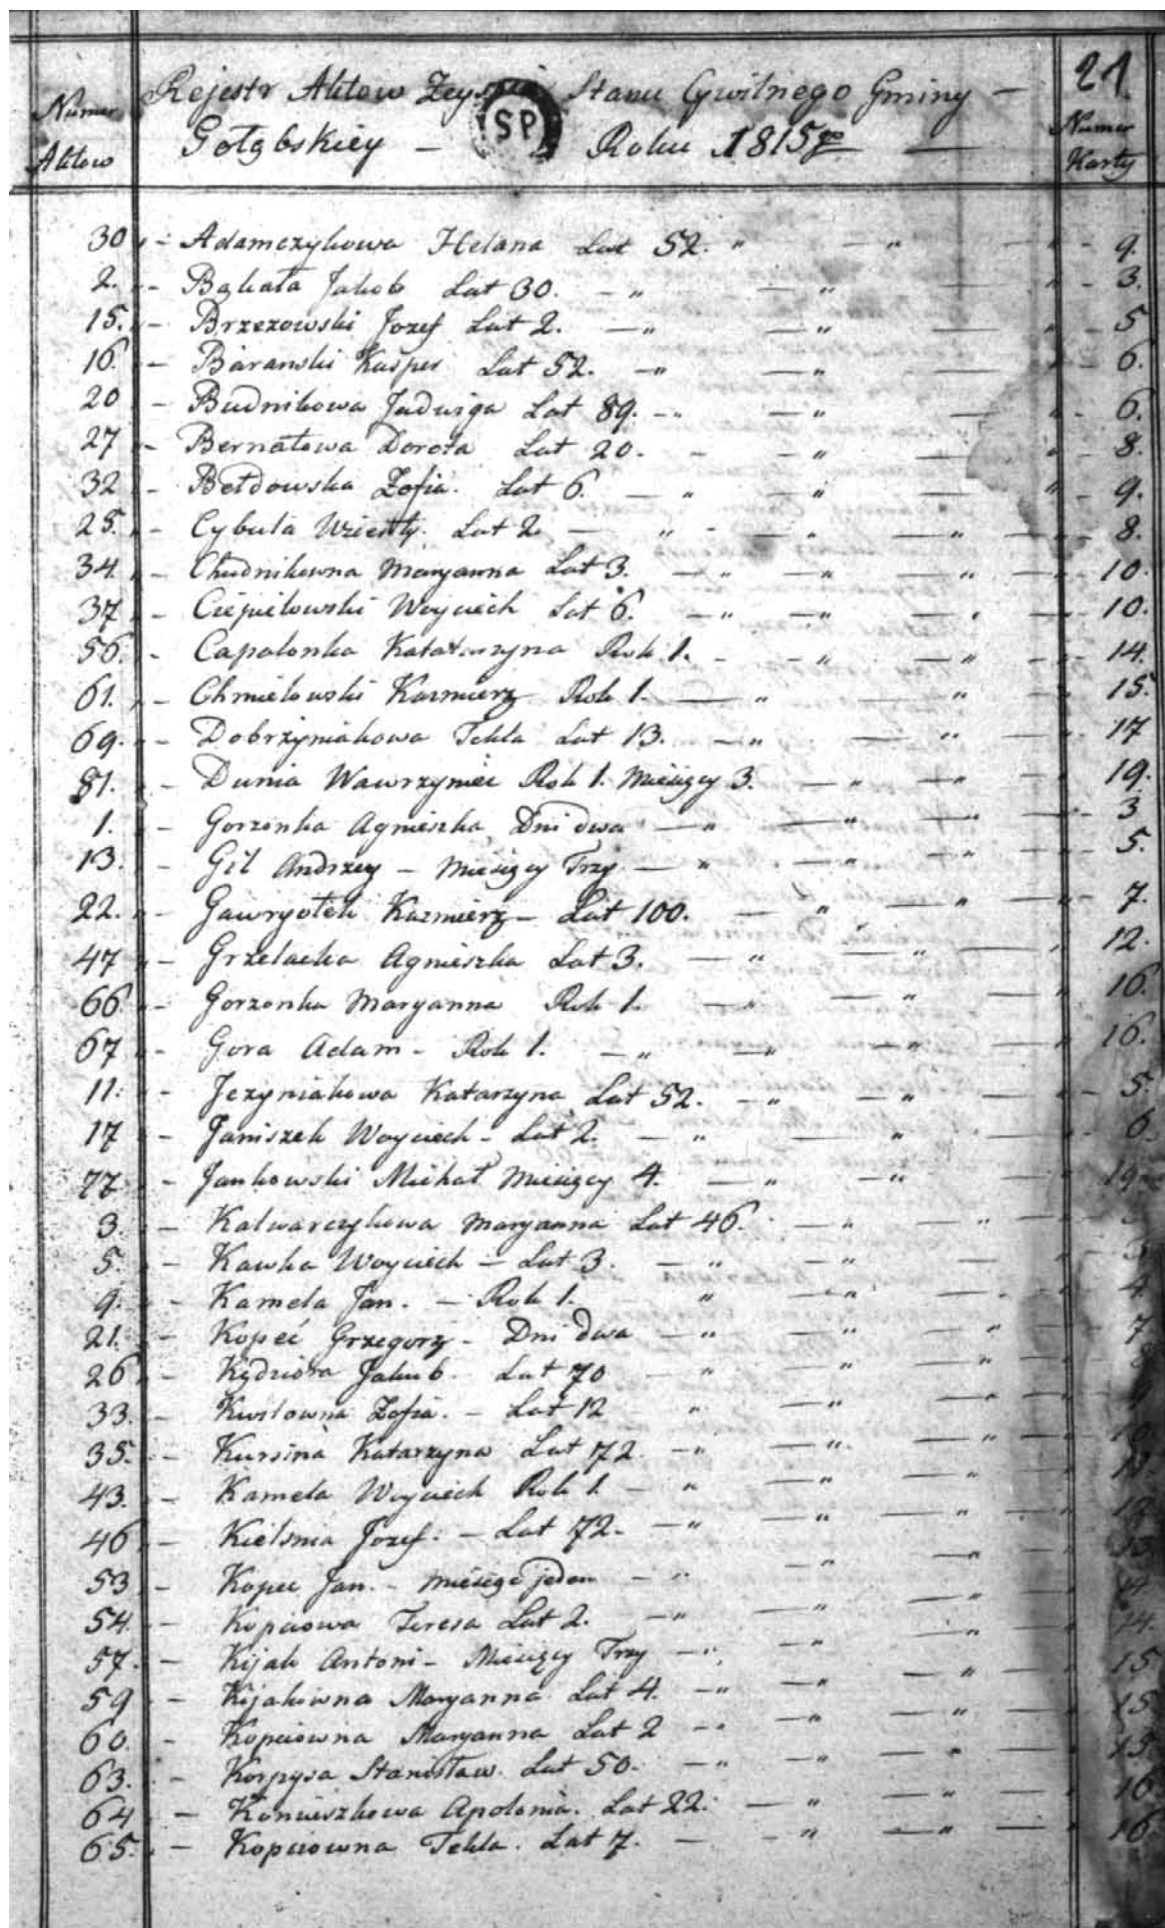 Numer Rejestr Aktow Zeyscia Stanu Cywilnego Gminy — 21
Aktow Gołąbskiey — SP Roku 1815go — Numer Karty
30 - Adamczykowa Helana Lat 52. " — " — " - 9.
2. - Bąkała Jakob Lat 30. — " — " — " - 3.
15. - Brzezowski Jozef Lat 2. — " — " — " - 5
16. - Baranski Kasper Lat 52. — " — " — " - 6.
20 - Budnikowa Jadwiga Lat 89. — " — " — " - 6.
27 - Bernatowa Dorota Lat 20. - — " — " - 8.
32 - Bełdowska Zofia. Lat 6. — " — " — " - 9.
25. - Cybula Lat 2. — " - — " — " — - 8.
34. - Chudnikowna Maryanna Lat 3. — " — " — " — - 10.
37 - Ciepielowski Woyciech Lat 6. — " — " — " — - 10.
56. - Capalonka Katarzyna Rok 1. - — " — " — - 14.
61. - Chmielowski Kazmierz Rok 1. — " — " — - 15.
69. - Dobrzyniakowa Tekla Lat 13. — " — " — - 17
81. - Dunia Wawrzyniec Rok 1. Miesięcy 3. — " — " — 19.
1. - Gorzonka Agnieszka Dni dwa — " — " — " — 3
13. - Gil Andrzey — Miesięcy Trzy — " — " — " — 5.
22. - Gawryołek Kazmierz — Lat 100. — " — " — " 7.
47 - Grzelacka Agnieszka Lat 3. — " — " — " 12.
66. - Gorzonka Maryanna Rok 1. — " — " — " 16.
67 - Gora Adam - Rok 1. — " — " — " — " 16.
11. - Jezyniakowa Katarzyna Lat 52. — " — " — - 5.
17 - Janiszek Woyciech - Lat 2. — " — " — - 6.
77 - Jankowski Michał Miesięcy 4. — " — " — 19
3. - Kalwarczykowa Maryanna Lat 46. — " — " —
5. - Kawka Woyciech — Lat 3. — " — " —
9. - Kamela Jan. — Rok 1. " — " — 4
21. - Kopeć Grzegorz - Dni dwa — " — " — " — 7
26 - Kędziora Jakub - Lat 70 — " — " — " — 8
33. - Zofia. — Lat 12 " — " — " —
35. - Kursina Katarzyna Lat 72. — " — " — " — 10.
43. - Kamela Woyciech Rok 1 — " — " — " —
46 - Kielsnia Jozef. — Lat 72. — " — " — " — 12
53 - Kopec Jan. - Miesiąc jeden — " — " — " —
54. - Kopciowa Teresa Lat 2. — " — " — " — 14.
57. - Kijak Antoni - Miesięcy Trzy — " — " — " — 15
59 - Kijakowna Maryanna Lat 4. — " — " — " — 15
60. - Kopciowna Maryanna Lat 2 — " — " — " — 15.
63. - Korpysa Stanisław. Lat 50. — " — " — " — 16
64 - Koniuszkowa Apolonia. Lat 22. — " — " — 16
65. - Kopciowna Tekla. Lat 7. — - " — " —